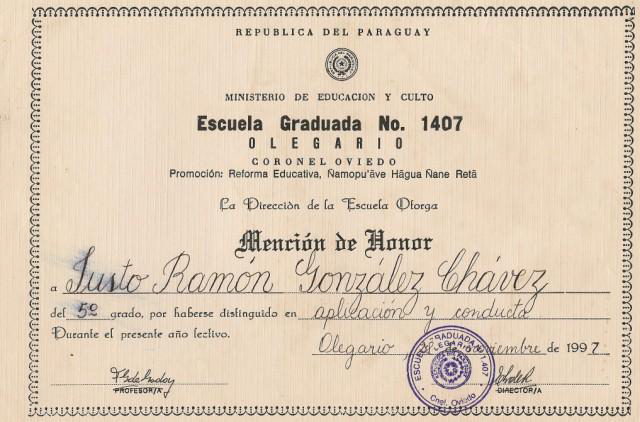 REPUBLICA DEL PARAGUAY
MINISTERIO DE EDUCACION Y CULTO
Escuela Graduada No. 1407
OLEGARIO
CORONEL OVIEDO
Promoción: Reforma Educativa, Ñamopu'ãve Hãgua Ñane Retã
La Dirección de la Escuela Otorga
Mención de Honor
a Justo Ramón González Chávez
del 5º grado, por haberse distinguido en aplicación y conducta
Durante el presente año lectivo.
Olegario, de noviembre de 1997
ESCUELA GRADUADA N° 1.407
OLEGARIO
Cnel. Oviedo
PROFESOR/A
DIRECTOR/A